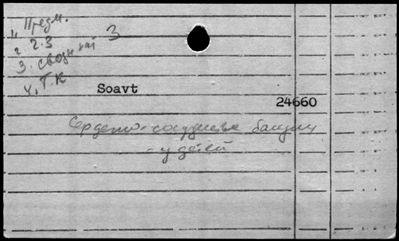 1, Предм.
2 2.3
3. сводный 3
4, Г.К
Soavt
24660
Сердечно-сосудистые
- у детей